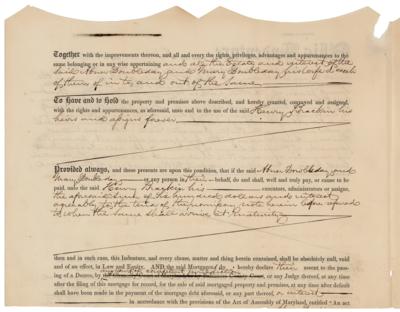 Together with the improvements thereon, and all and every the rights, privileges, advantages and appurtenances to the
same belonging or in any wise appertaining and all the Estate and interest of the
said Abner Doubleday and Mary Doubleday his wife & each
of them of in to, and out of the Same
To have and to hold the property and premises above described, and hereby granted, conveyed and assigned,
with the rights and appurtenances, as aforesaid, unto and to the use of the said Henry
his heirs and assigns forever
Provided always, and these presents are upon this condition, that if the said Abner Doubleday and
Mary Doubleday or any person in their behalf, do and shall well and truly pay, or cause to be
paid, unto the said Henry his executors, administrators or assigns,
the aforesaid Sum of hundred dollars and interest
to the note herein before referred
to when the Same Shall arrive at maturity
then and in such case, this Indenture, and every clause, matter and thing herein contained, shall be absolutely null, void
and of no effect, in Law and Equity. AND the said Mortgagors do hereby declare their assent to the pass-
ing of a Decree, by or any Judge thereof, at any time
after the filing of this mortgage for record, for the sale of said mortgaged property and premises, at any time after default
shall have been made in the payment of the mortgage debt aforesaid, or any part thereof, or interest
in accordance with the provisions of the Act of Assembly of Maryland, entitled "An act